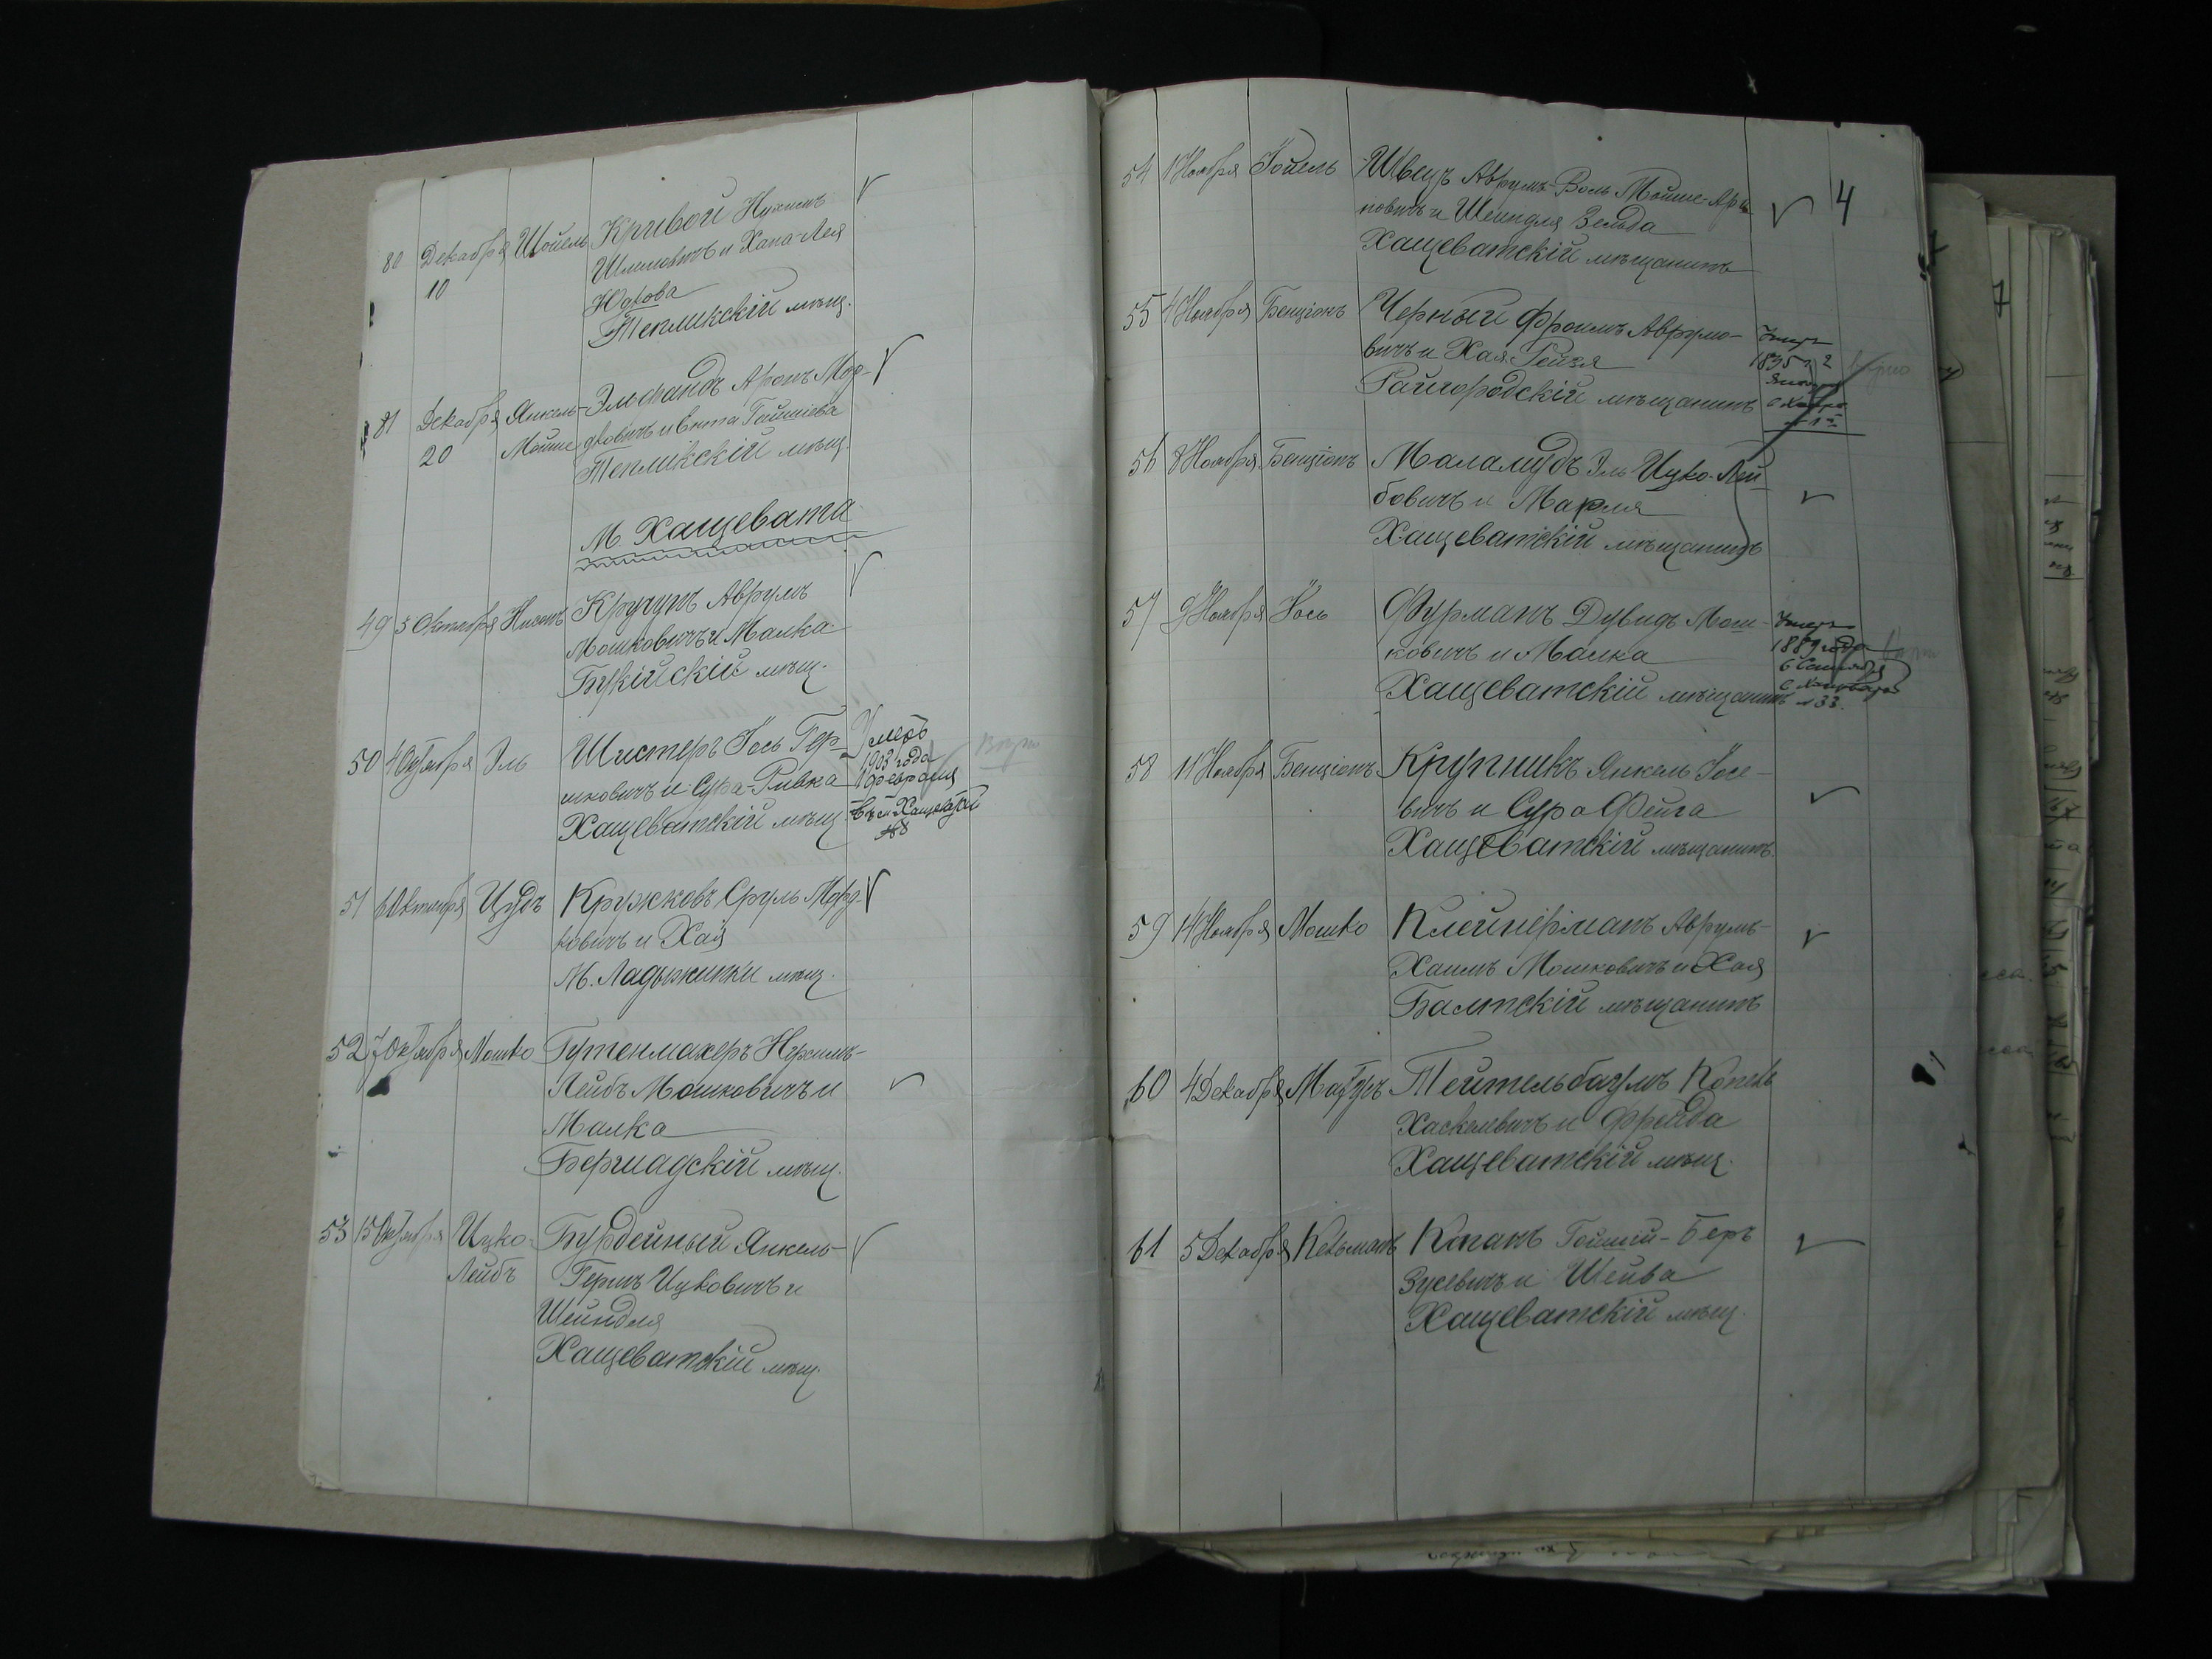 80 Декабря Шоель Кривой Нухимъ
10 Шлемовичъ и Хана-Лея
Юдкова
Тепликскій мѣщ.
81 Декабря Янкель- Эльфандъ Аронъ Мор-
20 Мойше дковичъ и Бета Гойшіева
Тепликскій мѣщ.
М. Хащевата
49 3 Октября Нисонъ Кручукъ Аврумъ
Мошковичъ и Малка
Букійскій мѣщ.
50 4 Октября Эль Шистеръ Іось Гер- Умеръ
1903 года
шковичъ и Сура-Ривка 11 февраля
Хащеватскій мѣщ. въ м. Хащеватой
№8
51 6 Октября Цудъ Кружковъ Сруль Морд-
ковичъ и Хая
М. Ладыжинки мѣщ.
52 7 Октября Мошко Гутенмахеръ Нухимъ-
Лейбъ Мошковичъ и
Малка
Бершадскій мѣщ.
53 15 Октября Ицко- Бурдейный Янкель-
Лейбъ Гершъ Ицковичъ и
Шейндля
Хащеватскій мѣщ.
4
54 1 Ноября Іойель Швецъ Аврумъ-Воль Мойше-Аро
новичъ и Шейндля Зельда
Хащеватскій мѣщанинъ
55 4 Ноября Бенціонъ Черный Фроимъ Аврумо- Умеръ
вичъ и Хая-Рейзя 1895 г. 2
Райгородскій мѣщанинъ Января
56 8 Ноября Бенціонъ Маламудъ Эль Ицко-Лей
бовичъ и Маріля
Хащеватскій мѣщанинъ
57 9 Ноября Іось Фурманъ Дувидъ Мош- Умеръ
ковичъ и Малка 1889 года
6 Сентября
Хащеватскій мѣщанинъ №33.
58 11 Ноября Бенціонъ Крупникъ Янкель Іосе-
вичъ и Сура Фейга
Хащеватскій мѣщанинъ
59 14 Ноября Мошко Клейнерманъ Аврумъ-
Хаимъ Мошковичъ и Хая
Балтскій мѣщанинъ
60 4 Декабря Матусъ Тейтельбаумъ Копель
Хаскелевичъ и Фрейда
Хащеватскій мѣщ.
61 5 Декабря Кельманъ Копанъ Гойшій-Беръ
Зусевичъ и Шейва
Хащеватскій мѣщ.